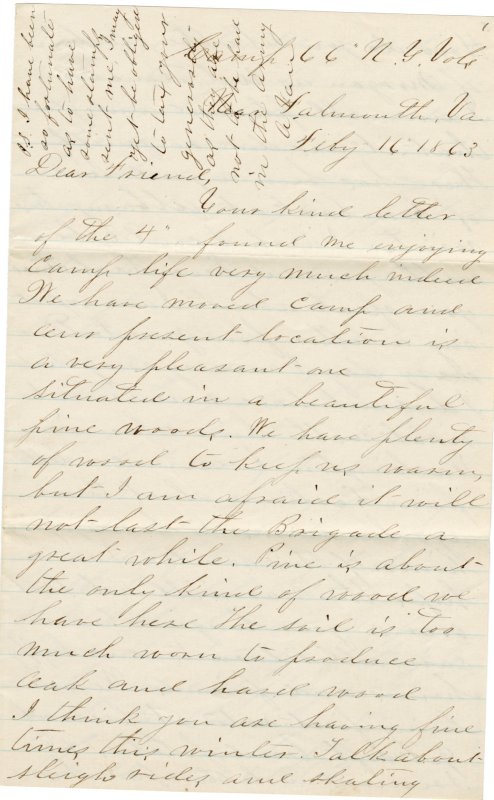 Camp 66" N.Y. Vols
Near Falmouth, Va
Feby 16 1863
Dear Friend,
Your kind letter
of the 4" found me enjoying
Camp life very much indeed
We have moved Camp and
our present location is
a very pleasant one
situated in a beautiful
pine woods. We have plenty
of wood to keep us warm,
but I am afraid it will
not last the Brigade a
great while. Pine is about
the only kind of wood we
have here The soil is too
much worn to produce
oak and hard wood
I think you are having fine
times this winter. Talk about
sleigh rides and skating
P.S. I have been
so fortunate
as to have
some stamps
sent me, I may
yet be obliged
to tax your
generosity
as they are
not to be had
in the army